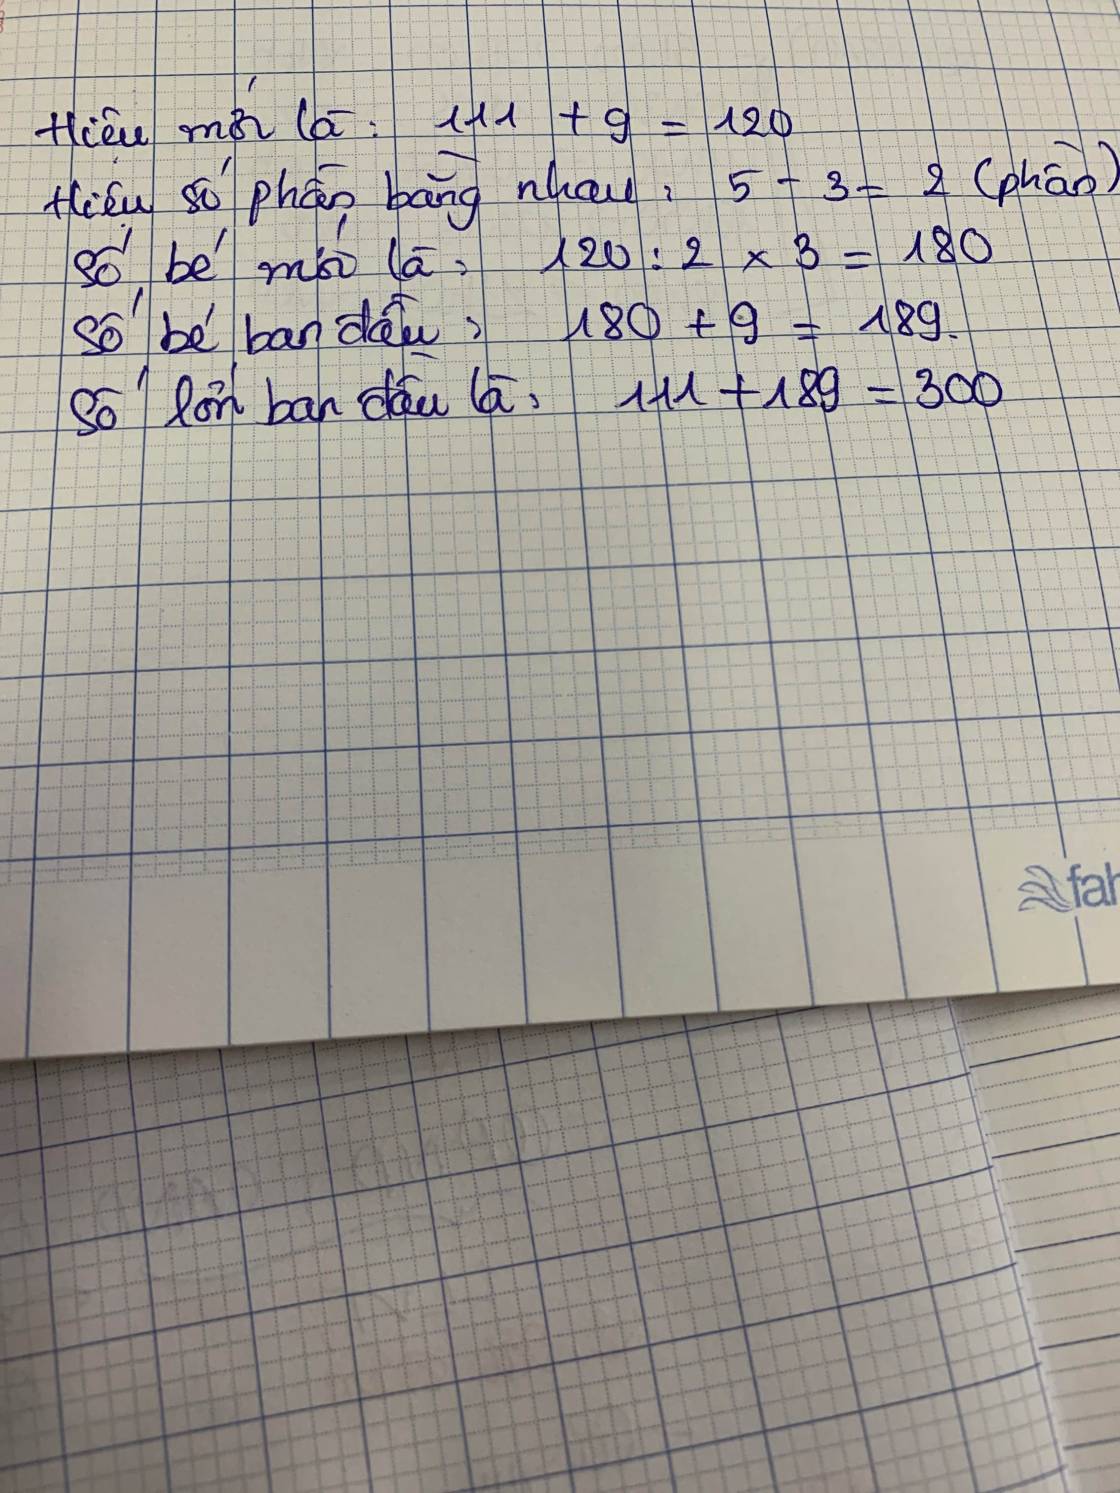 Hiệu mới là: 111 + 9 = 120
Hiệu số phần bằng nhau: 5 - 3 = 2 (phần)
Số bé mới là: 120 : 2 x 3 = 180
Số bé ban đầu: 180 + 9 = 189.
Số lớn ban đầu là: 111 + 189 = 300